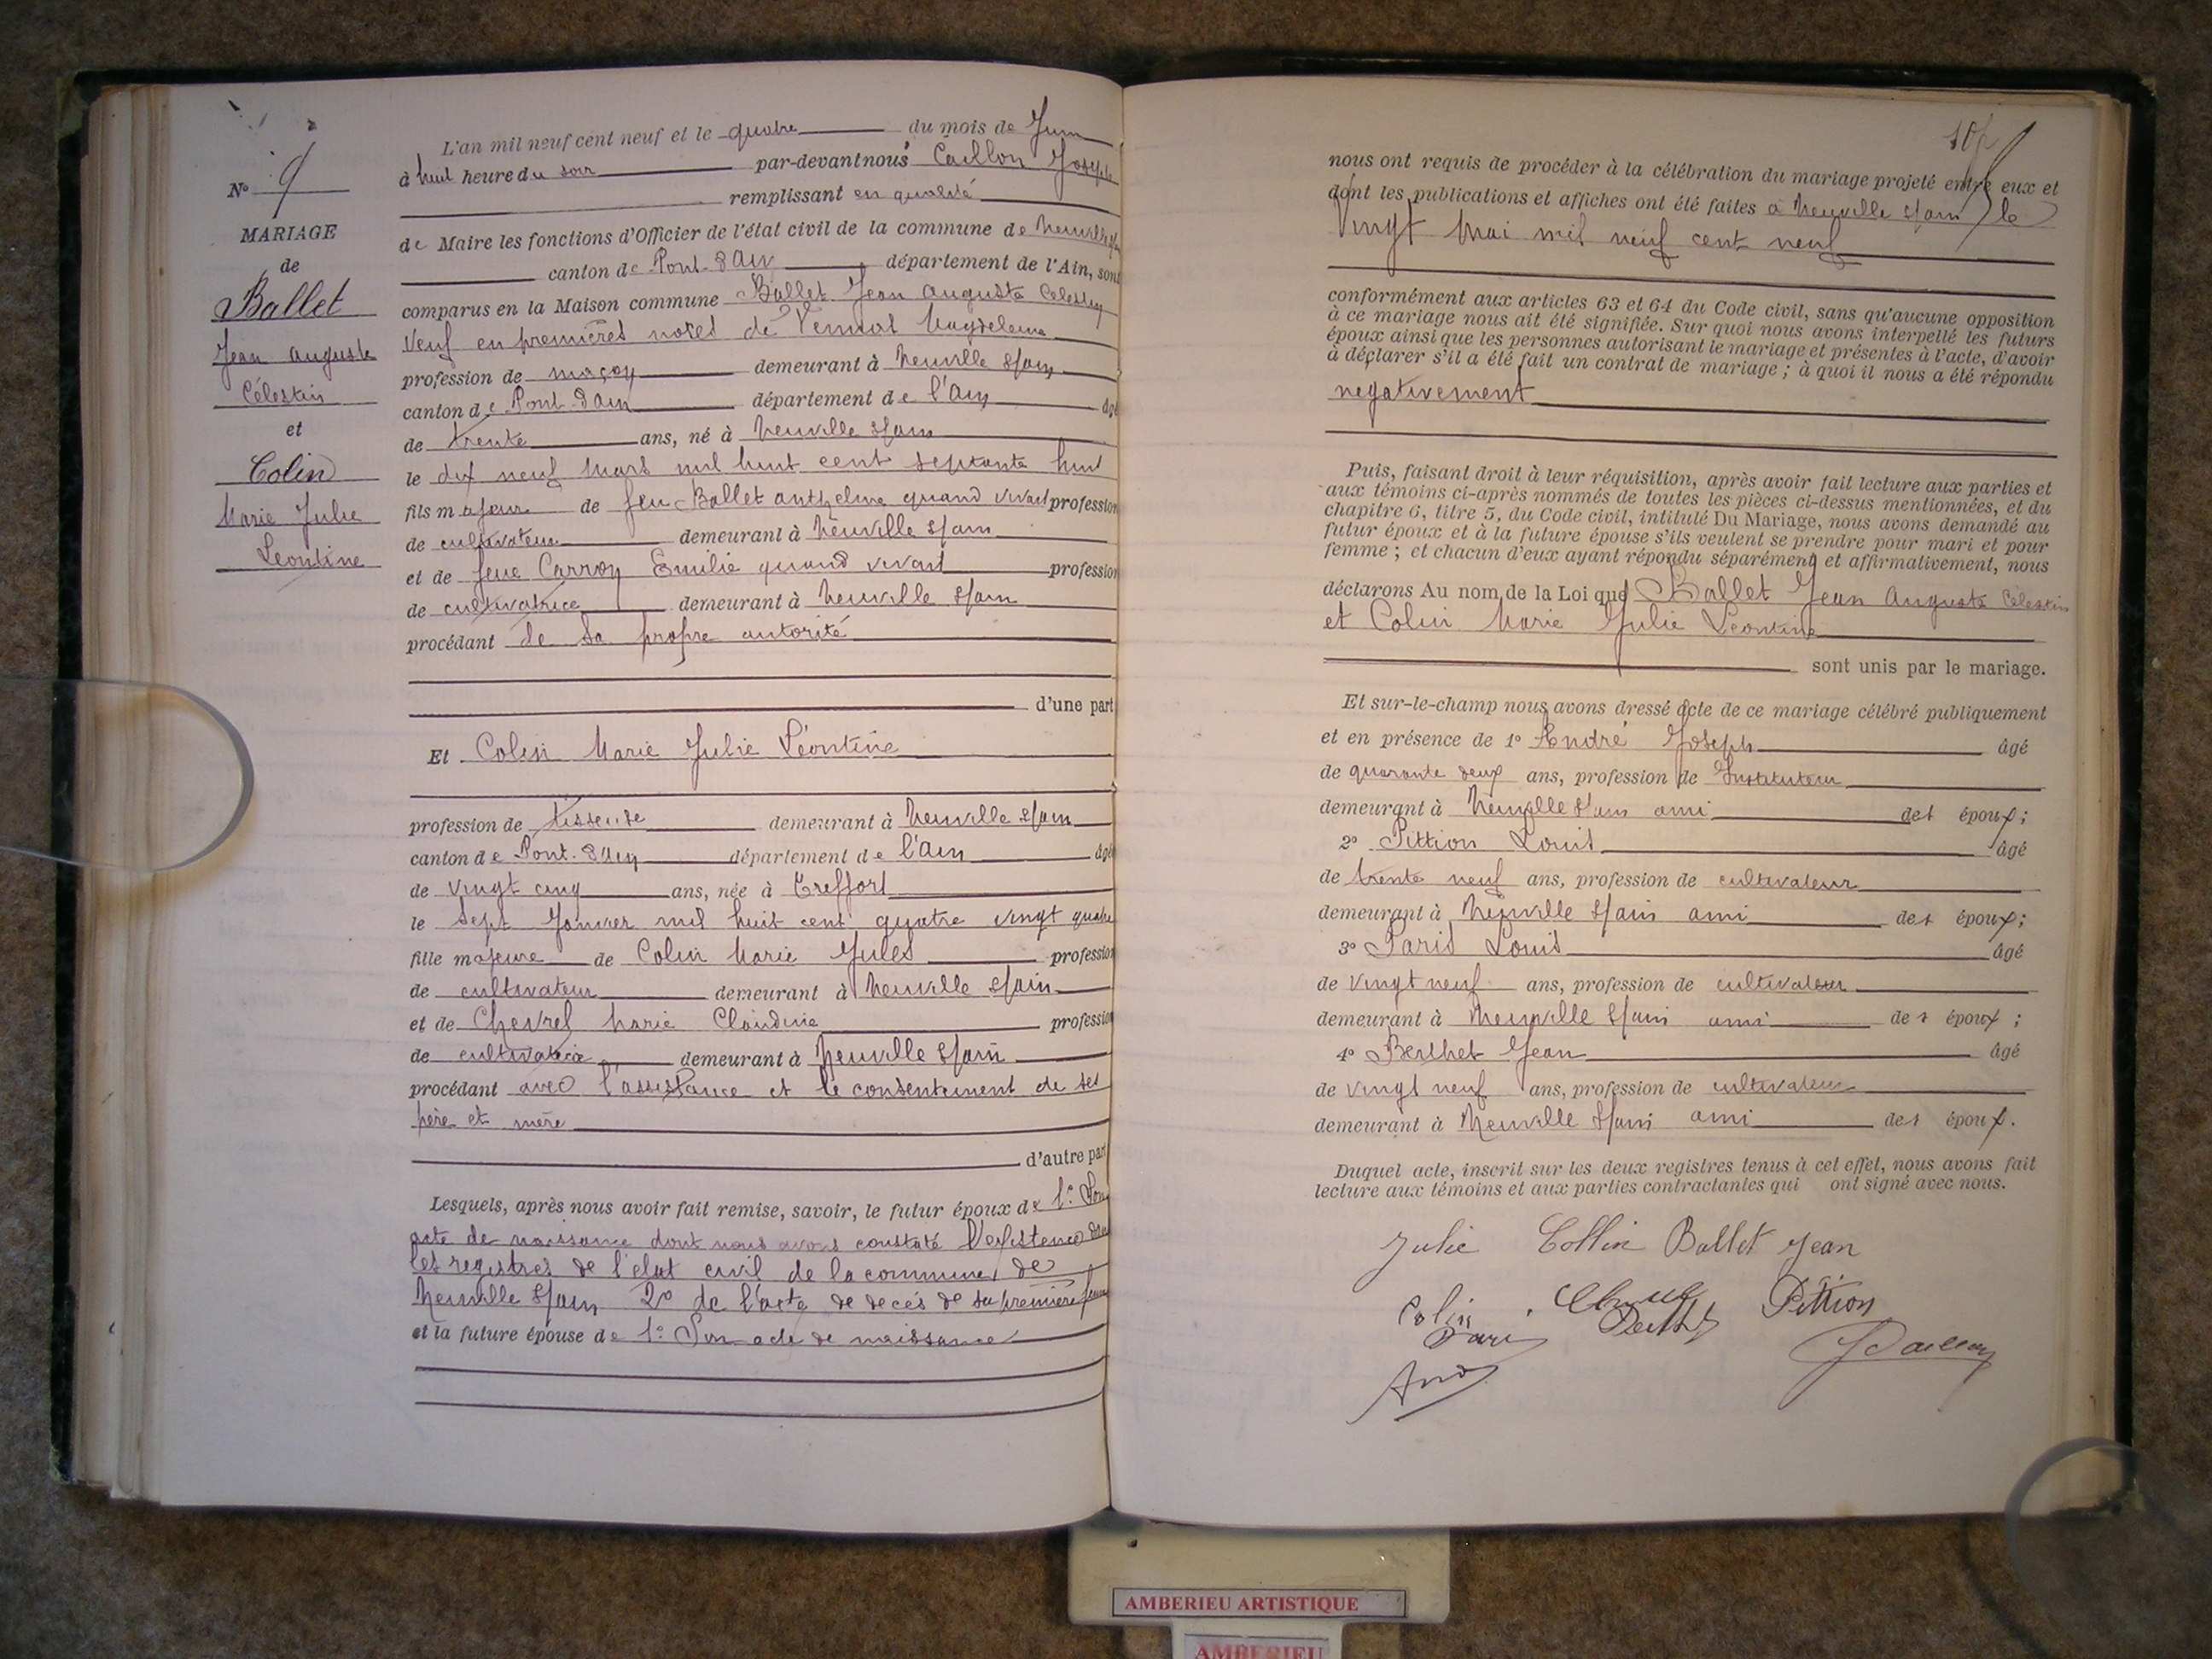 N° 9
MARIAGE
de
Ballet
Jean Auguste
Célestin
et
Colin
Marie Julie
Léontine
L'an mil neuf cent neuf et le quatre du mois de Juin
à huit heure du soir par-devant nous Caillon Joseph
remplissant en qualité
de Maire les fonctions d'Officier de l'état civil de la commune de Neuville s/ain
canton de Pont-d'Ain département de l'Ain, sont
comparus en la Maison commune Ballet Jean Auguste Célestin
Veuf en premières noces de Magdeleine
profession de maçon demeurant à Neuville s/ain
canton de Pont d'ain département de l'Ain âgé
de trente ans, né à Neuville s/ain
le dix neuf Mars mil huit cent septante huit
fils majeur de feu Ballet anthelme quand vivait profession
de cultivateur demeurant à Neuville s/ain
et de feue Carron Emilie quand vivait profession
de cultivatrice demeurant à Neuville s/ain
procédant de sa propre autorité
d'une part
Et Colin Marie Julie Léontine
profession de tisseuse demeurant à Neuville s/ain
canton de Pont-d'Ain département de l'Ain âgée
de vingt cinq ans, née à Treffort
le sept Janvier mil huit cent quatre vingt quatre
fille majeure de Colin Marie Jules profession
de cultivateur demeurant à Neuville s/ain
et de Chevrel Marie Claudine profession
de cultivatrice demeurant à Neuville s/ain
procédant avec l'assistance et le consentement de ses
père et mère
d'autre part
Lesquels, après nous avoir fait remise, savoir, le futur époux de 1° Son
acte de naissance dont nous avons constaté l'existence dans
les registres de l'état civil de la commune de
Neuville s/ain 2° de l'acte de decés de sa première femme
et la future épouse de 1° Son acte de naissance
nous ont requis de procéder à la célébration du mariage projeté entre eux et
dont les publications et affiches ont été faites à Neuville s/ain le
Vingt Mai mil neuf cent neuf
conformément aux articles 63 et 64 du Code civil, sans qu'aucune opposition
à ce mariage nous ait été signifiée. Sur quoi nous avons interpellé les futurs
époux ainsi que les personnes autorisant le mariage et présentes à l'acte, d'avoir
à déclarer s'il a été fait un contrat de mariage ; à quoi il nous a été répondu
negativement
Puis, faisant droit à leur réquisition, après avoir fait lecture aux parties et
aux témoins ci-après nommés de toutes les pièces ci-dessus mentionnées, et du
chapitre 6, titre 5, du Code civil, intitulé Du Mariage, nous avons demandé au
futur époux et à la future épouse s'ils veulent se prendre pour mari et pour
femme ; et chacun d'eux ayant répondu séparément et affirmativement, nous
déclarons Au nom de la Loi que Ballet Jean Auguste Célestin
et Colin Marie Julie Léontine
sont unis par le mariage.
Et sur-le-champ nous avons dressé acte de ce mariage célébré publiquement
et en présence de 1° André Joseph âgé
de quarante deux ans, profession de Instituteur
demeurant à Neuville s/ain ami des époux ;
2° Pittion Louis âgé
de trente neuf ans, profession de cultivateur
demeurant à Neuville s/ain ami des époux ;
3° Paris Louis âgé
de vingt neuf ans, profession de cultivateur
demeurant à Neuville s/ain ami des époux ;
4° Berthet Jean âgé
de vingt neuf ans, profession de cultivateur
demeurant à Neuville s/ain ami des époux.
Duquel acte, inscrit sur les deux registres tenus à cet effet, nous avons fait
lecture aux témoins et aux parties contractantes qui ont signé avec nous.
Julie Collin Ballet Jean
Colin Pittion
AMBERIEU ARTISTIQUE
AMBERIEU